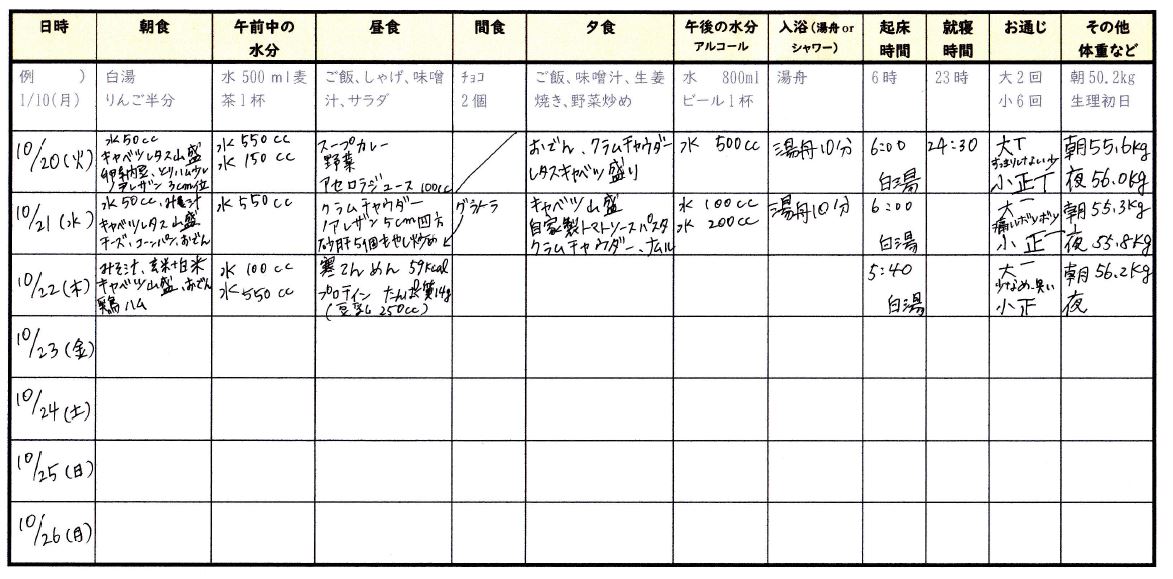 日時 朝食 午前中の水分 昼食 間食 夕食 午後の水分 アルコール 入浴(湯舟or シャワー) 起床時間 就寝時間 お通じ その他 体重など
例 ) 白湯 水500ml麦 ご飯、しゃげ、味噌 チョコ ご飯、味噌汁、生姜 水 800ml 湯舟 6時 23時 大2回 朝50.2kg
1/10(月) りんご半分 茶1杯 汁、サラダ 2個 焼き、野菜炒め ビール1杯 小6回 生理初日
10/20(火)
水50cc
キャベツレタス山盛
卵納豆、とりハム少し
ノアレザン 3cm位
水 550cc
水 150cc
スープカレー
野菜
アセロラジュース 100cc
おでん、クラムチャウダー
レタスキャベツ盛り
水 500cc
湯舟10分
6:00
白湯
24:30
大丅
小正丅
朝55.6kg
夜56.0kg
10/21(水)
水50cc、みそ汁
キャベツレタス山盛
チーズ、コーンパン、おでん
水 550cc
クラムチャウダー
ノアレザン 5cm四方
砂肝5個もやし炒め
グラノラ
キャベツ山盛
自家製トマトソースパスタ
クラムチャウダー、ナムル
水 100cc
水 200cc
湯舟10分
6:00
白湯
大一
痛いボツボツ
小 正一
朝55.3kg
夜55.8kg
10/22(木)
みそ汁、玄米+白米
キャベツ山盛、おでん
鶏ハム
水 100cc
水 550cc
寒てんめん 59kcal
プロテイン たんぱく質14g
(豆乳250cc)
5:40
白湯
大一
少なめ、臭い
小正
朝56.2kg
夜
10/23(金)
10/24(土)
10/25(日)
10/26(月)